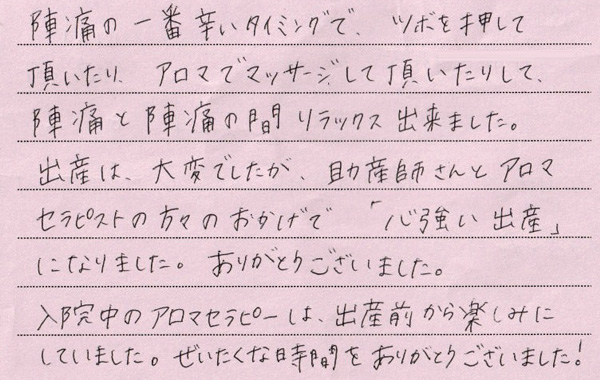 陣痛の一番辛いタイミングで、ツボを押して
頂いたり、アロマでマッサージして頂いたりして、
陣痛と陣痛の間リラックス出来ました。
出産は、大変でしたが、助産師さんとアロマ
セラピストの方々のおかげで「心強い出産」
になりました。ありがとうございました。
入院中のアロマセラピーは、出産前から楽しみに
していました。ぜいたくな時間をありがとうございました!